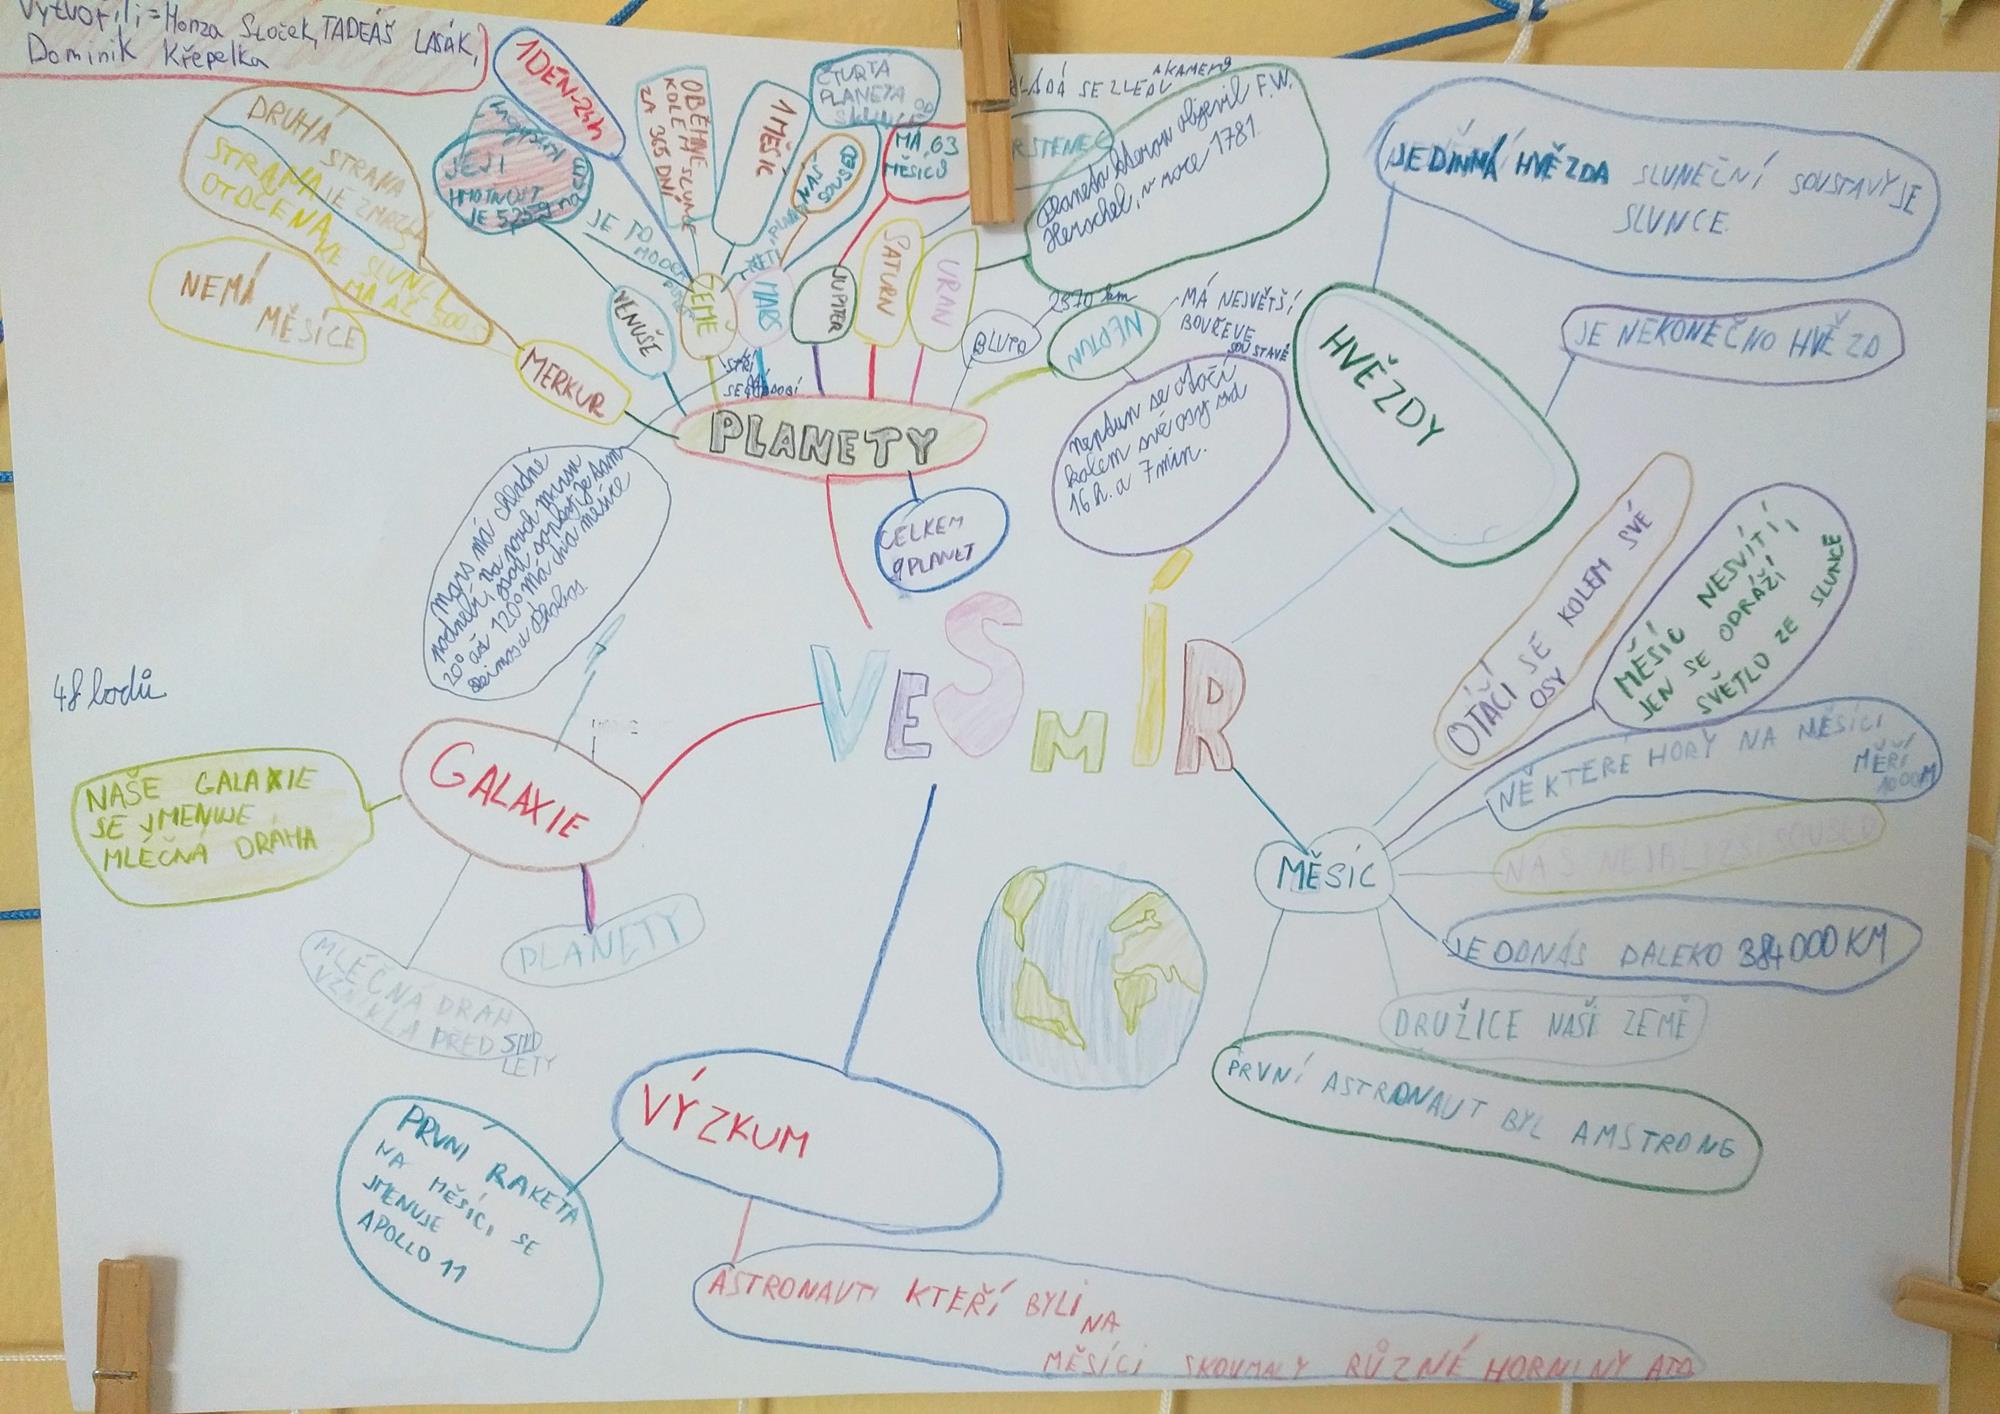 Vytvořili=Honza Sloček, TADEÁŠ LASÁK,
Dominik Křepelka
1 DEN-24h
OBĚHNE
KOLEM SLUNCE
ZA 365 DNÍ
1 MĚSÍC
ČTVRTÁ
PLANETA
OD
SLUNCE
NÁŠ
SOUSED
MÁ 63
MĚSÍCŮ
SE Z LEDU
A KAMENŮ
objevil F.W.
Herschel, v roce 1781.
DRUHÁ
STRANA
JE ZMRZLÁ
STRANA
OTOČENÁ
KE SLUNCI
MÁ AŽ 500
NEMÁ
MĚSÍCE
JEJÍ
HMOTNOST
JE TO
MODRÁ
MERKUR
VENUŠE
ZEMĚ
MARS
JUPITER
SATURN
URAN
BLUTO
2370 km
NEPTUN
MÁ NEJVĚTŠÍ
BOUŘE VE
SOUSTAVĚ
Neptun se otočí
kolem své osy za
16 h. a 7 min.
PLANETY
CELKEM
9 PLANET
Mars má chladné
podnebí
20° až 120° má dva měsíce
HVĚZDY
JEDINNÁ HVĚZDA SLUNEČNÍ SOUSTAVY JE
SLUNCE.
JE NEKONEČNO HVĚZD
VESMÍR
48 bodů
GALAXIE
NAŠE GALAXIE
SE JMENUJE
MLÉČNÁ DRÁHA
PLANETY
MLÉČNÁ DRÁH
VZNIKLA PŘED
LETY
MĚSÍC
OTÁČÍ SE KOLEM SVÉ
OSY
MĚSÍC NESVÍTÍ,
JEN SE ODRÁŽÍ
SVĚTLO ZE SLUNCE
NĚKTERÉ HORY NA MĚSÍCI
MĚŘÍ
1000M
NÁŠ NEJBLIŽŠÍ SOUSED
JE ODNÁS DALEKO 384 000 KM
DRUŽICE NAŠÍ ZEMĚ
PRVNÍ ASTRONAUT BYL AMSTRONG
VÝZKUM
PRVNÍ RAKETA
NA MĚSÍCI SE
JMENUJE
APOLLO 11
ASTRONAUTI KTEŘÍ BYLI
NA
MĚSÍCI SKOUMALY RŮZNÉ HORNINY ATD